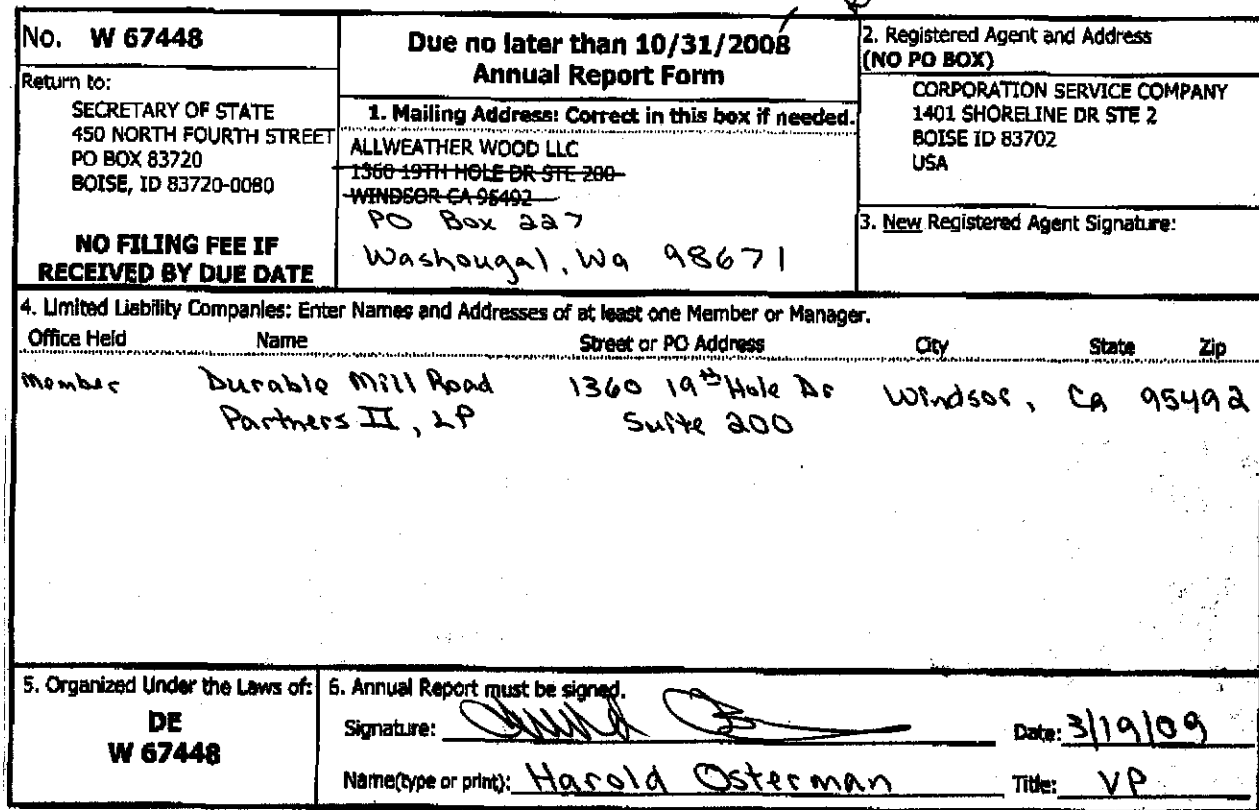 No. W 67448
Return to:
SECRETARY OF STATE
450 NORTH FOURTH STREET
PO BOX 83720
BOISE, ID 83720-0080
NO FILING FEE IF
RECEIVED BY DUE DATE
Due no later than 10/31/2008
Annual Report Form
1. Mailing Address: Correct in this box if needed.
ALLWEATHER WOOD LLC
1360 19TH HOLE DR STE 200
WINDSOR CA 95492
PO Box 227
Washougal, Wa 98671
2. Registered Agent and Address
(NO PO BOX)
CORPORATION SERVICE COMPANY
1401 SHORELINE DR STE 2
BOISE ID 83702
USA
3. New Registered Agent Signature:
4. Limited Liability Companies: Enter Names and Addresses of at least one Member or Manager.
Office Held Name Street or PO Address City State Zip
Member Durable Mill Road 1360 19th Hole Dr Windsor, Ca 95492
Partners II, LP Suite 200
5. Organized Under the Laws of:
DE
W 67448
6. Annual Report must be signed.
Signature: Date: 3/19/09
Name(type or print): Harold Osterman Title: VP